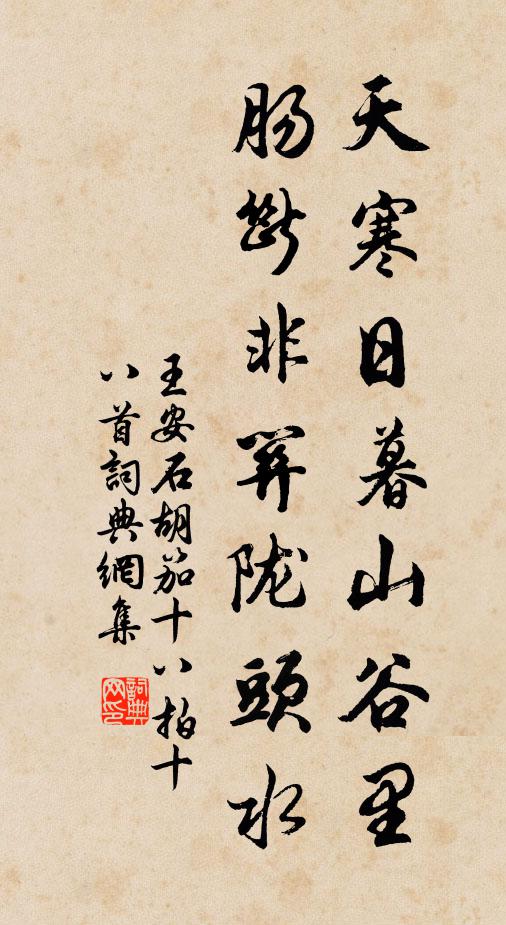 天寒日暮山谷里
腸斷非關陇頭水
王安石胡笳十八拍十
八首詞典網集
詞典网印